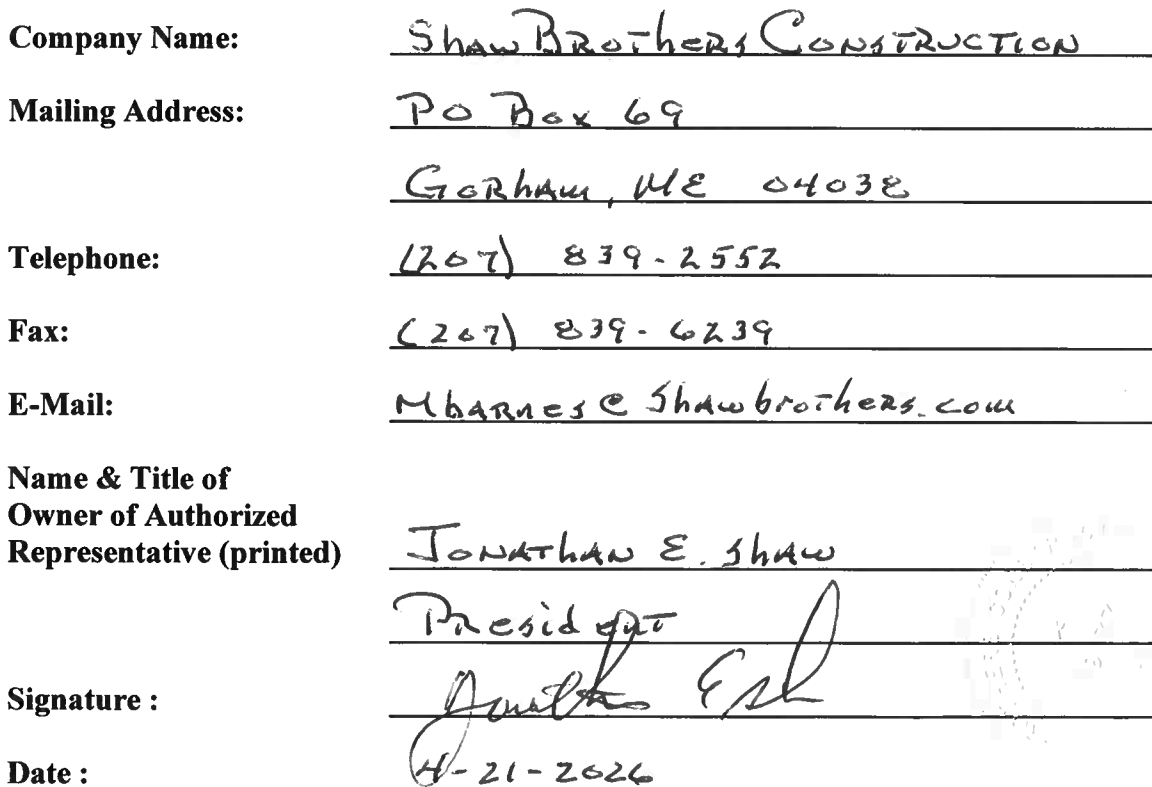 Company Name: Shaw Brothers Construction
Mailing Address: PO Box 69
Gorham, ME 04038
Telephone: (207) 839-2552
Fax: (207) 839-6239
E-Mail: Mbarnes@Shawbrothers.com
Name & Title of
Owner of Authorized
Representative (printed) Jonathan E. Shaw
President
Signature :
Date : 4-21-2026